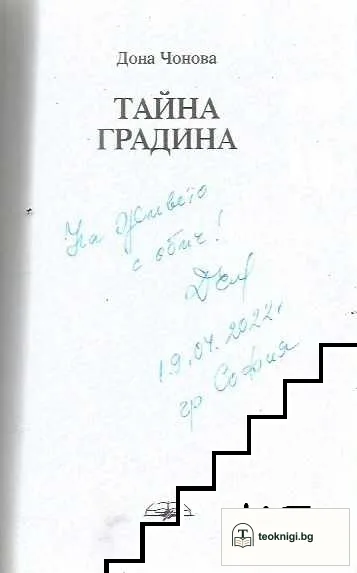 Дона Чонова
ТАЙНА
ГРАДИНА
На Живето
с обич!
19.04.2022г
гр София
teoknigi.bg